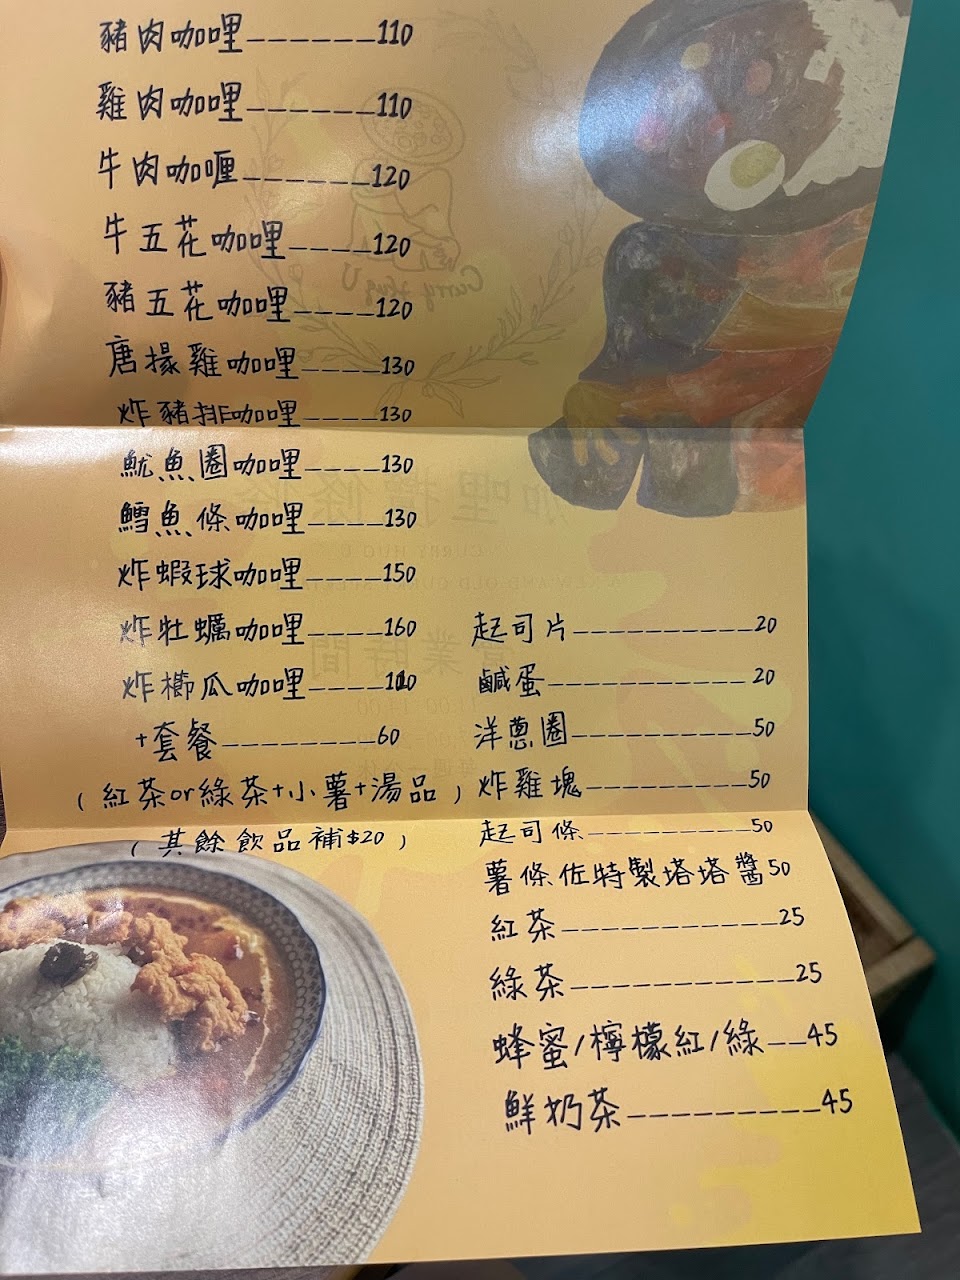 豬肉咖哩------110
雞肉咖哩------110
牛肉咖喱------120
牛五花咖哩----120
豬五花咖哩----120
唐揚雞咖哩----130
炸豬排咖哩----130
魷魚圈咖哩----130
鱈魚條咖哩----130
炸蝦球咖哩----150
炸牡蠣咖哩----160
炸櫛瓜咖哩----110
+套餐--------60
(紅茶or綠茶+小薯+湯品)
(其餘飲品補$20)
起司片----------20
鹹蛋-----------20
洋蔥圈----------50
炸雞塊---------50
起司條---------50
薯條佐特製塔塔醬50
紅茶------------25
綠茶------------25
蜂蜜/檸檬紅/綠--45
鮮奶茶----------45